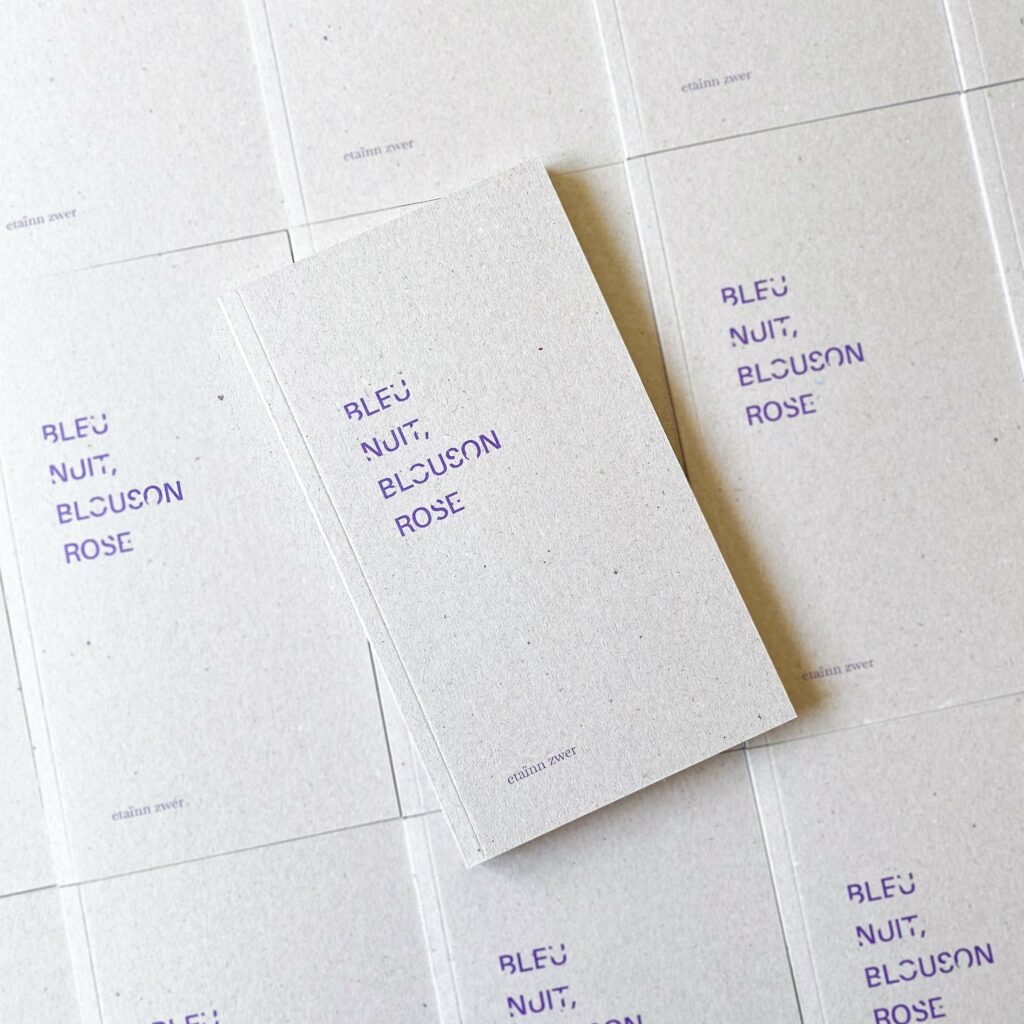 etaïnn zwer
etaïnn zwer
etaïnn zwer
BLEU
NUIT,
BLOUSON
ROSE
etaïnn zwer
BLEU
NUIT,
BLOUSON
ROSE
etaïnn zwer
BLEU
NUIT,
BLOUSON
ROSE
etaïnn zwer
BLEU
BLEU
NUIT,
BLOUSON
BLEU
NUIT,
BLOUSON
ROSE